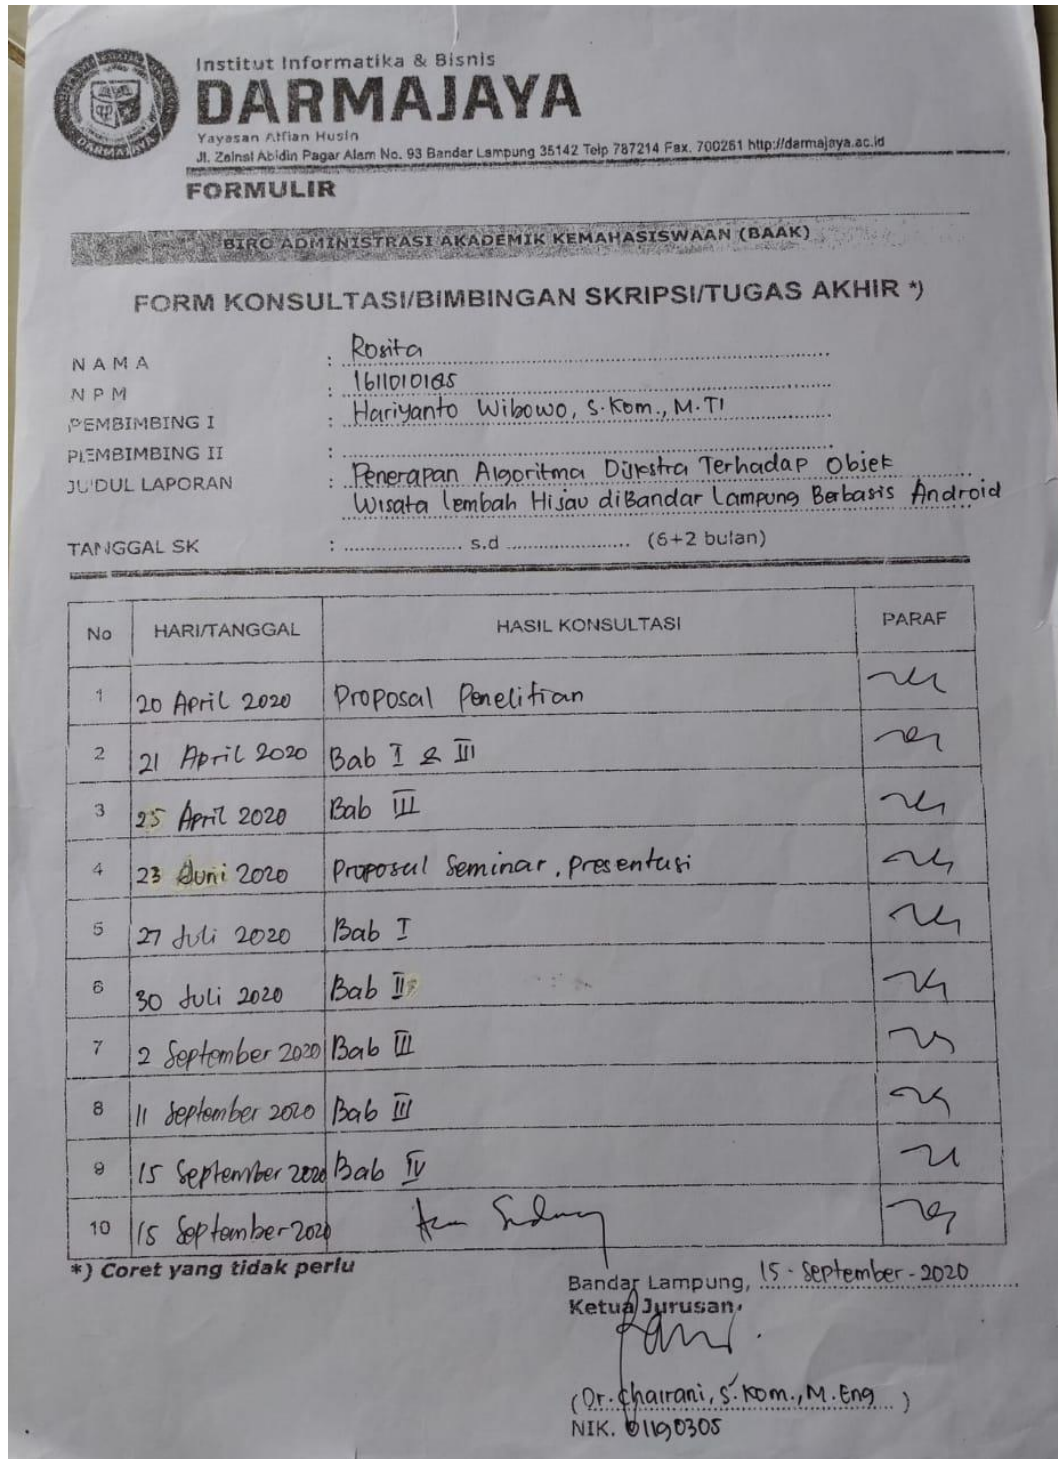 Institut Informatika & Bisnis
DARMAJAYA
Yayasan Alfian Husin
Jl. Zainal Abidin Pagar Alam No. 93 Bandar Lampung 35142 Telp 787214 Fax. 700261 http://darmajaya.ac.id
FORMULIR
BIRO ADMINISTRASI AKADEMIK KEMAHASISWAAN (BAAK)
FORM KONSULTASI/BIMBINGAN SKRIPSI/TUGAS AKHIR *)
NAMA : Rosita
NPM :
PEMBIMBING I : Hariyanto Wibowo, S.Kom., M.TI
PEMBIMBING II :
JUDUL LAPORAN : Penerapan Algoritma Dijkstra Terhadap Objek
Wisata Lembah Hijau di Bandar Lampung Berbasis Android
TANGGAL SK : ........ s.d ........ (6+2 bulan)
No HARI/TANGGAL HASIL KONSULTASI PARAF
1 20 April 2020 Proposal Penelitian
2 21 April 2020 Bab I & III
3 25 April 2020 Bab III
4 23 Juni 2020 Proposal Seminar, presentasi
5 27 Juli 2020 Bab I
6 30 Juli 2020 Bab II
7 2 September 2020 Bab III
8 11 September 2020 Bab III
9 15 September 2020 Bab IV
10 15 September 2020
*) Coret yang tidak perlu
Bandar Lampung, 15-September-2020
Ketua Jurusan
(Dr. Chairani, S.Kom., M.Eng)
NIK. 01190305